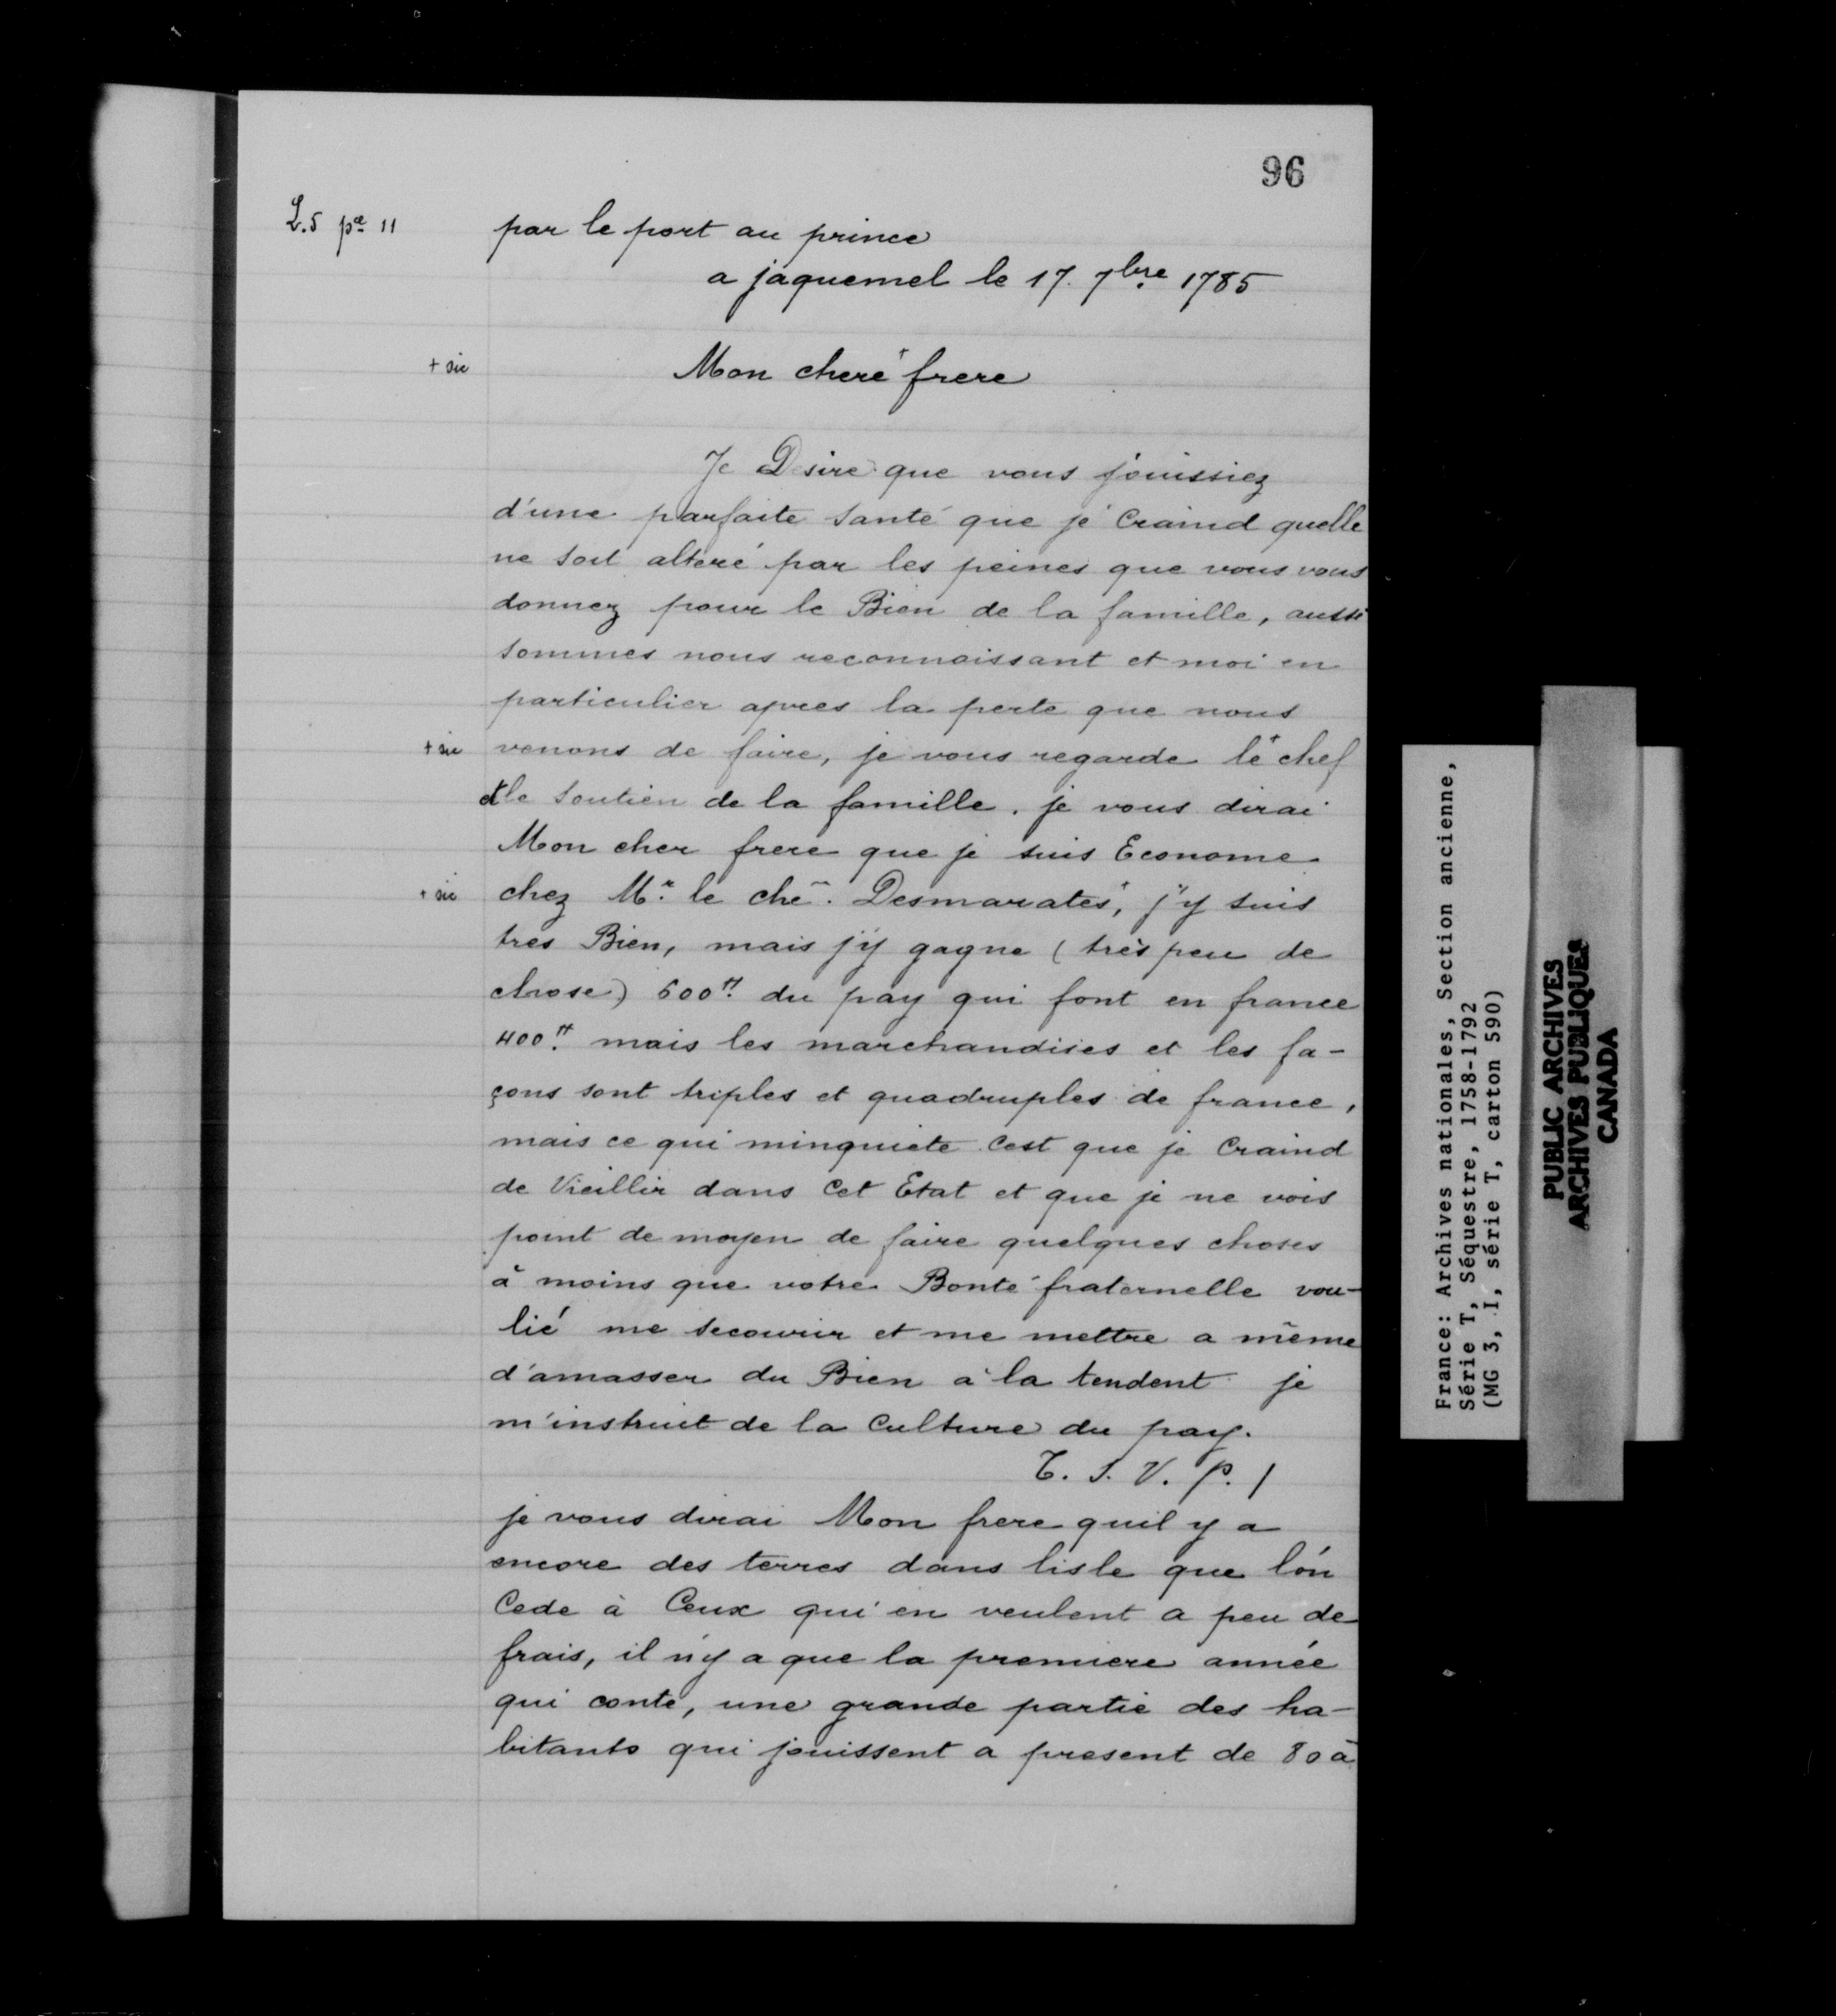 96
L.5 pce 11
par le port au prince
a jaquemel le 17. 7bre 1785
+ sic
Mon cheré+ frere
Je Desire que vous jouissiez
d'une parfaite santé que je craind quelle
ne soit alteré par les peines que vous vous
donnez pour le Bien de la famille, aussi
sommes nous reconnaissant et moi en
particulier apres la perte que nous
+ sic
venons de faire, je vous regarde le+ chef
et le soutien de la famille. je vous dirai
Mon cher frere que je suis Econome
+ sic
chez Mr. le che. Desmarates+, j'y suis
tres Bien, mais j'y gagne (très peu de
chose) 600tt. du pay qui font en france
400tt. mais les marchandises et les fa-
çons sont triples et quadruples de france,
mais ce qui minquiete cest que je craind
de Vieillir dans Cet Etat et que je ne vois
point de moyen de faire quelques choses
à moins que votre Bonté fraternelle vou-
lié me secourir et me mettre a même
d'amasser du Bien a la tendent je
m'instruit de la Culture du pay.
T. S. V. P. /
je vous dirai Mon frere quil y a
encore des terres dans lisle que l'on
Cede à Ceux qui en veulent a peu de
frais, il n'y a que la premiere année
qui conte, une grande partie des ha-
bitants qui jouissent a present de 80 à
France: Archives nationales, Section ancienne,
Série T, Séquestre, 1758-1792
(MG 3, I, série T, carton 590)
PUBLIC ARCHIVES
ARCHIVES PUBLIQUES
CANADA